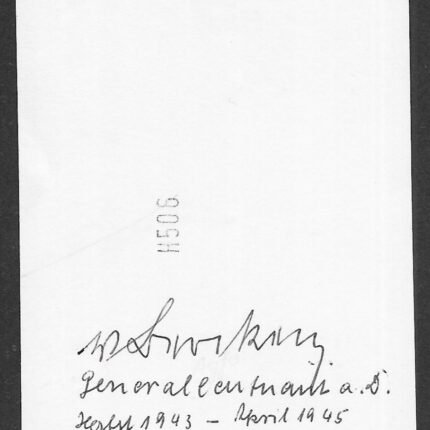 H506
Generalleutnant a.D.
Herbst 1943 – April 1945